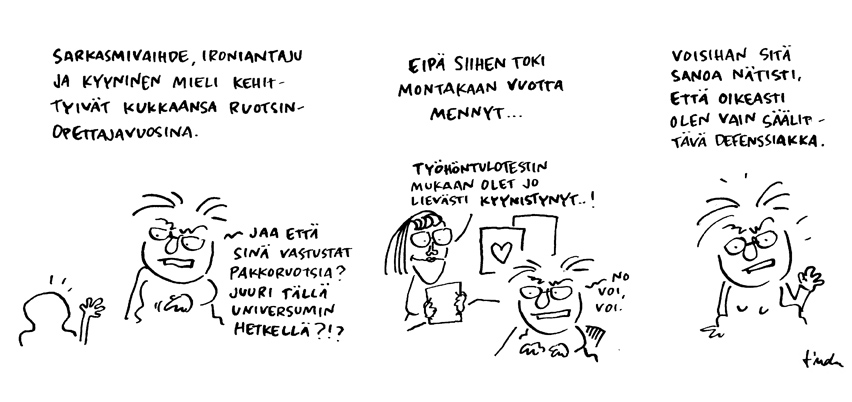 SARKASMIVAIHDE, IRONIANTAJU
JA KYYNINEN MIELI KEHIT-
TYIVÄT KUKKAANSA RUOTSIN-
OPETTAJAVUOSINA.
JAA ETTÄ
SINÄ VASTUSTAT
PAKKORUOTSIA?
JUURI TÄLLÄ
UNIVERSUMIN
HETKELLÄ?!?
EIPÄ SIIHEN TOKI
MONTAKAAN VUOTTA
MENNYT...
TYÖHÖNTULOTESTIN
MUKAAN OLET JO
LIEVÄSTI KYYNISTYNYT..!
NO
VOI,
VOI.
VOISIHAN SITÄ
SANOA NÄTISTI,
ETTÄ OIKEASTI
OLEN VAIN SÄÄLIT-
TÄVÄ DEFENSSIAKKA.